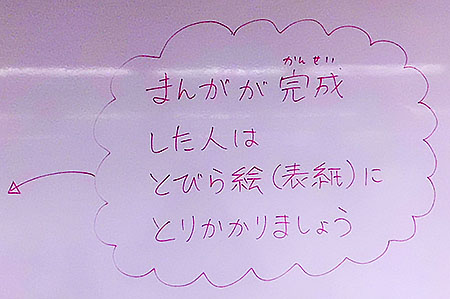 まんがが完成
かんせい
した人は
とびら絵(表紙)に
とりかかりましょう